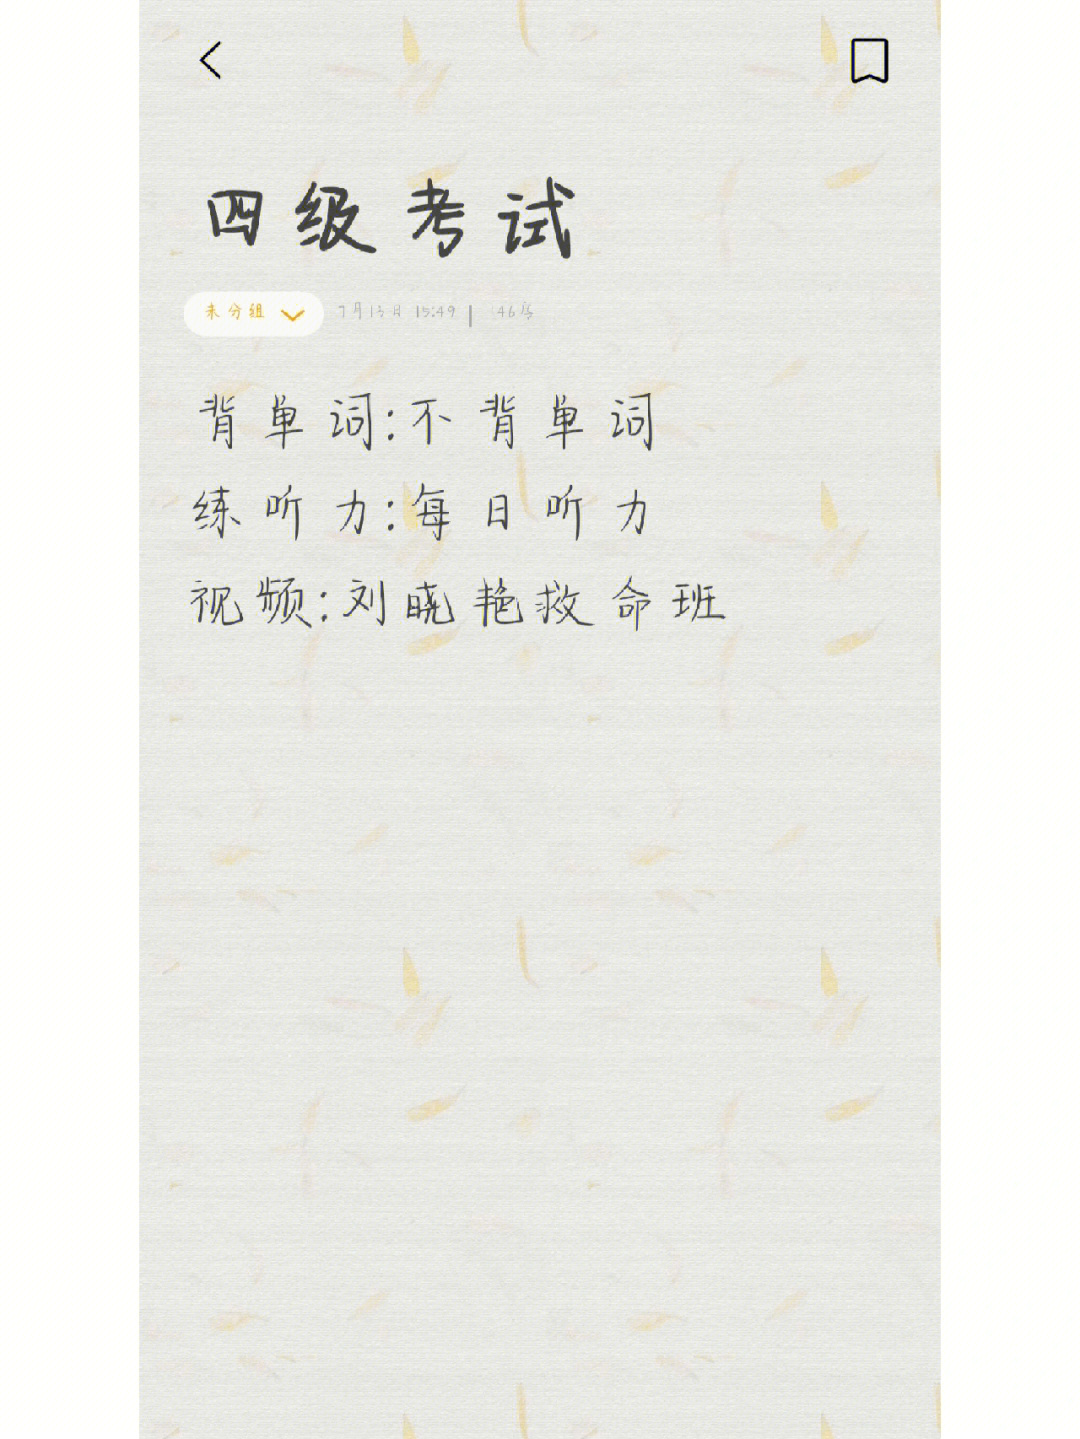 四级考试
未分组 7月15日 15:49 | 146字
背单词:不背单词
练听力:每日听力
视频:刘晓艳救命班